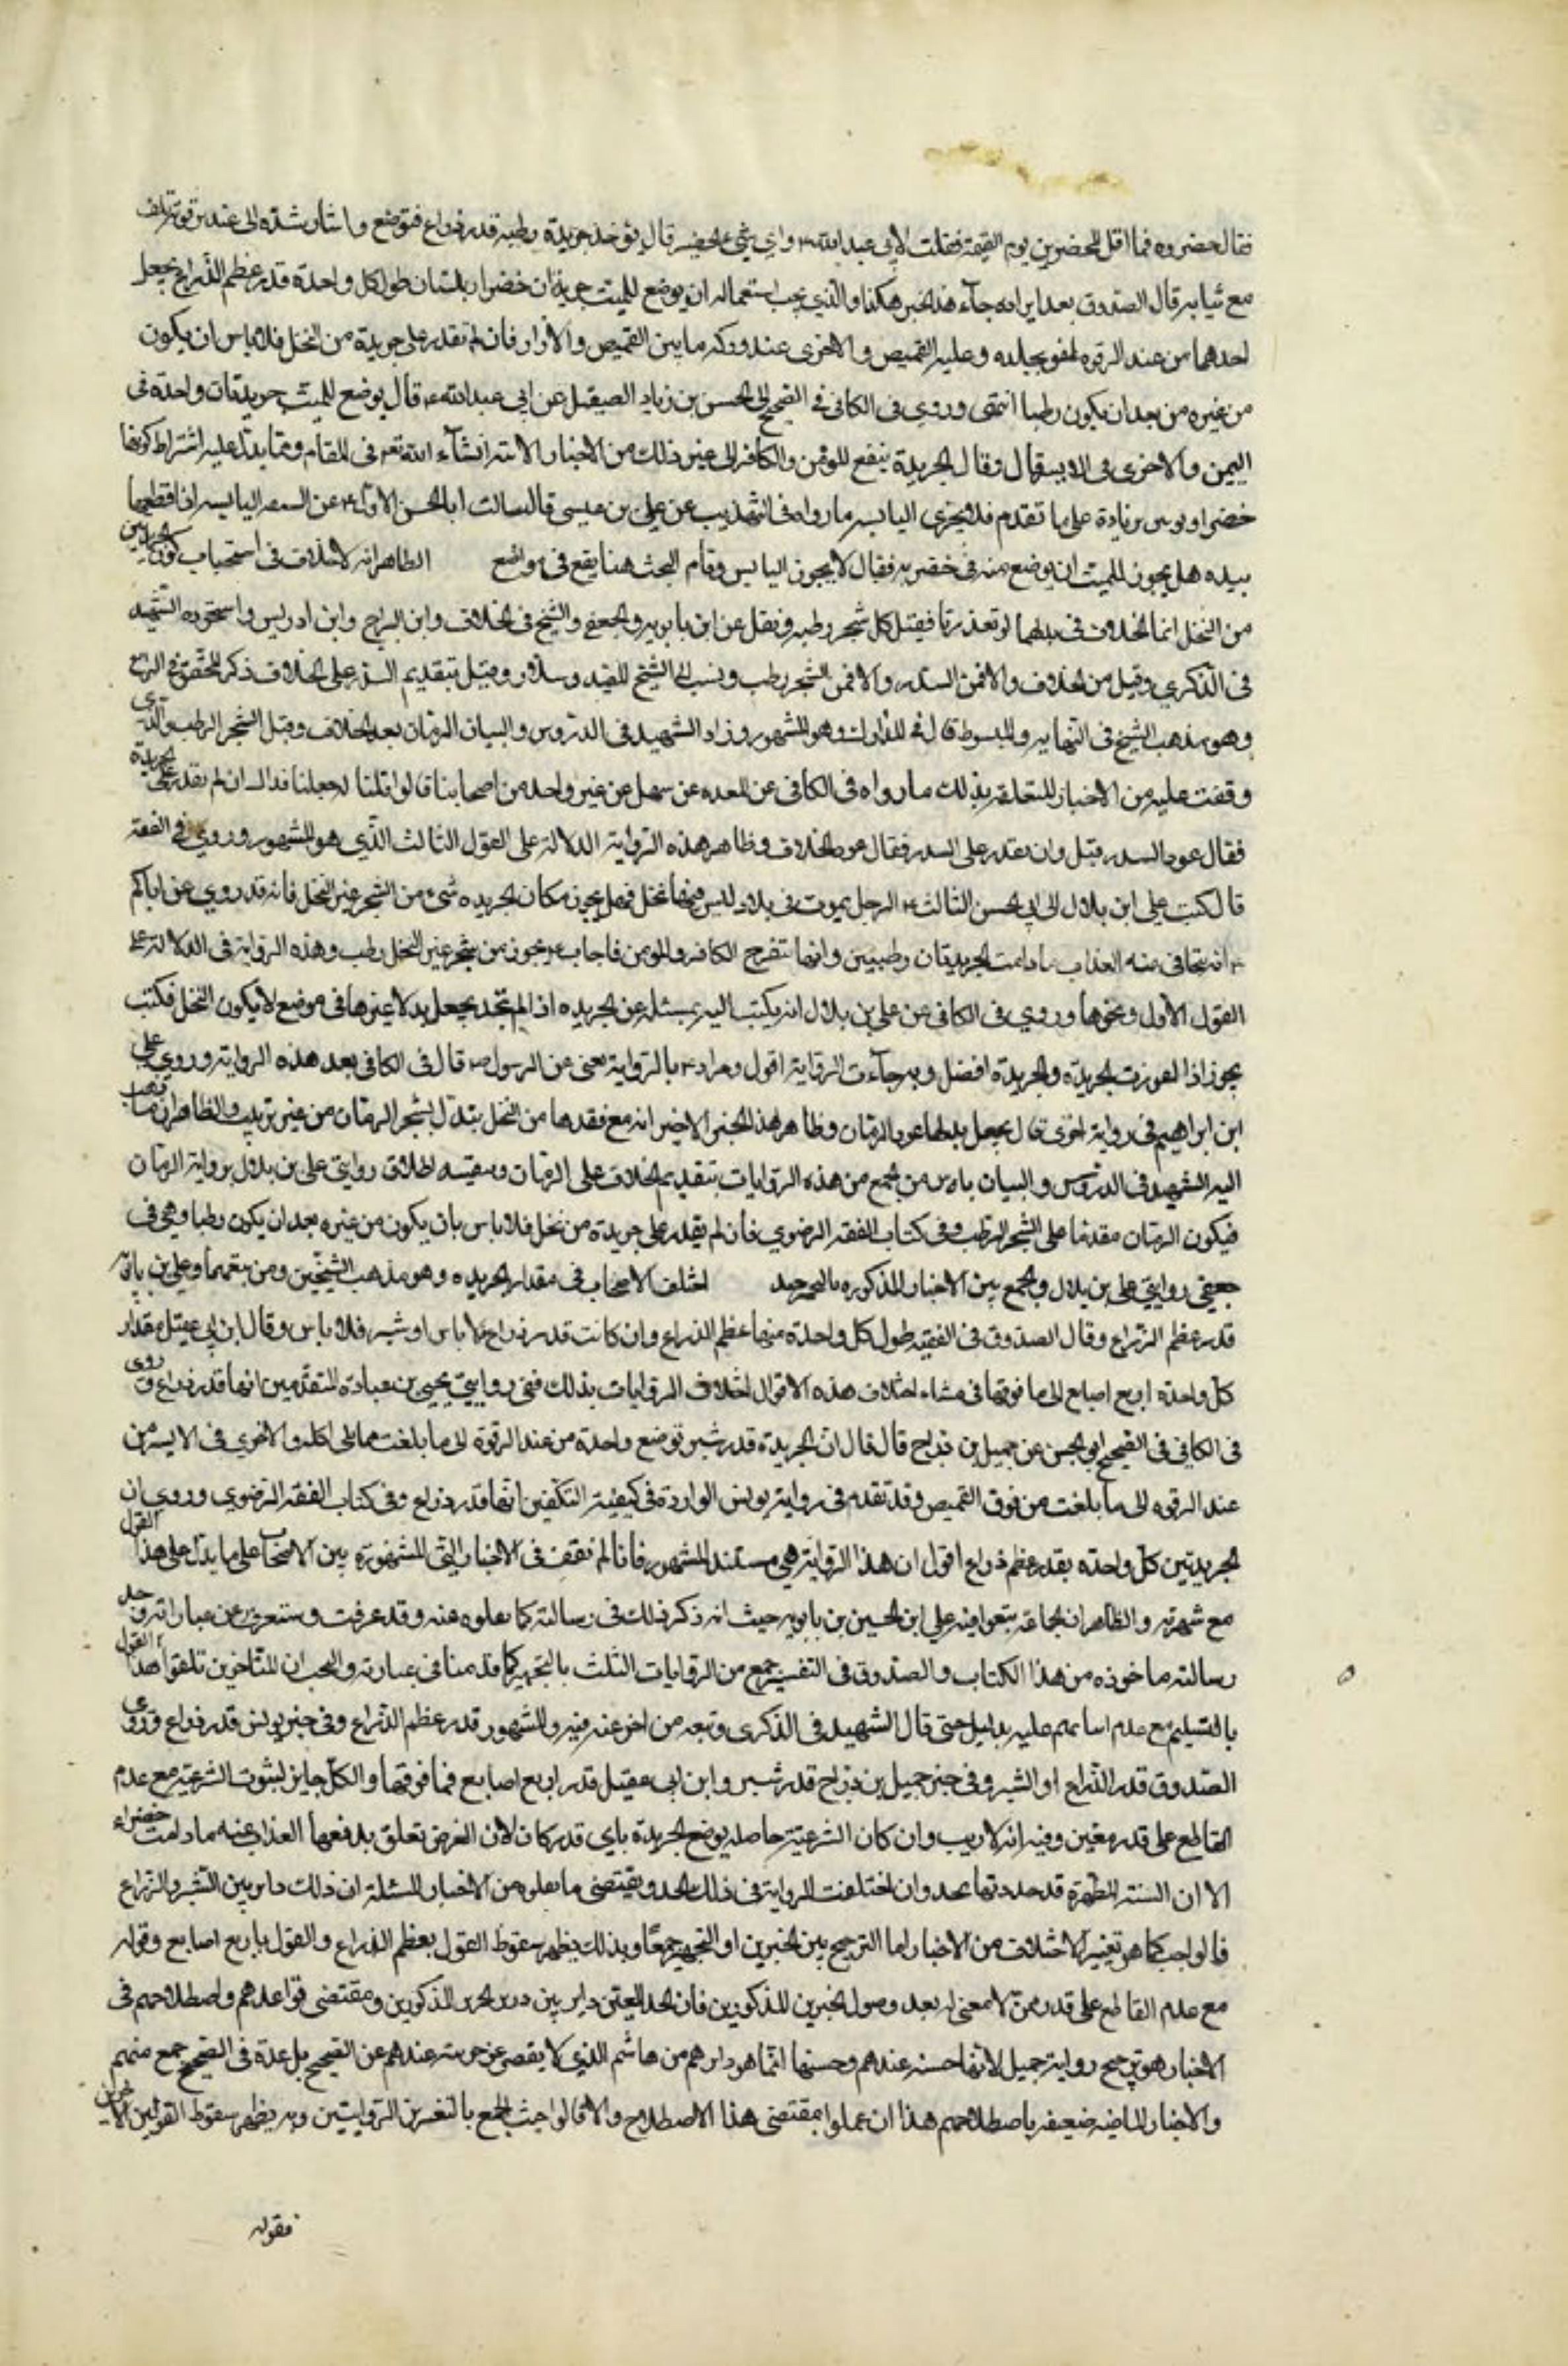 فقال خضروه فما اقل المخضرين يوم القيمة فقلت لابي عبد الله ع واي شيء التخضير قال يؤخذ جريدة رطبه قدر ذراع فتوضع واشار بيده الى عند ترقوته تلف
مع ثيابه قال الصدوق بعد ايراده جاء هذا الخبر هكذا والذي يجب استعماله ان يوضع للميت جريدتان خضراوان من النخل طول كل واحدة قدر عظم الذراع يجعل
احدهما من عند الترقوه تلصق بجلده وعليه القميص والاخرى عند وركه ما بين القميص والازار فان لم تقدر على جريدة من النخل فلا باس ان يكون
من غيره من بعد ان يكون رطبا انتهى وروي فى الكافي في الصحيح الى الحسن بن زياد الصيقل عن ابي عبد الله ع قال يوضع للميت جريدتان واحدة فى
اليمين والاخرى فى الايسر قال وقال الجريدة ينفع المؤمن والكافر الى غير ذلك من الاخبار الاتية انشاء الله تعم فى المقام ومما يدل عليه اشتراط كونها
خضراوين زيادة على ما تقدم فلا يجزى اليابس ما رواه فى التهذيب عن علي بن عيسى قال سالت ابا الحسن الاول ع عن السعفه اليابسه اذا قطعها
بيده هل يجوز للميت ان يوضع منه فى حفرته فقال لا يجوز اليابس وتمام البحث هنا يقع فى مواضع الظاهر انه لا خلاف فى استحباب كون الجريدتين
من النخل انما الخلاف فى بدلهما لو تعذرتا فقيل كل شجر رطبه ونقل عن ابن بابويه والجعفي والشيخ فى الخلاف وابن البراج وابن ادريس واستجوده الشهيد
فى الذكرى وقيل من الخلاف والا فمن السدر والا فمن الشجر رطب ونسب الى الشيخ المفيد وسلار وقيل بتقديم السدر على الخلاف ذكره المحقق في الشرايع
وهو مذهب الشيخ فى النهايه والمبسوط قال فى المدارك وهو المشهور وزاد الشهيد فى الدروس والبيان الرمان بعد الخلاف وقبل الشجر الرطب والذى
وقفت عليه من الاخبار المتعلقه بذلك ما رواه فى الكافى عن العده عن سهل عن غير واحد من اصحابنا قالوا قلنا له جعلنا فداك ان لم نقدر على الجريدة
فقال عود السدر قيل وان لم نقدر على السدر فقال عود الخلاف وظاهر هذه الرواية الدلالة على القول الثالث الذي هو المشهور وروي في الفقه
قال كتب علي ابن بلال الى ابي الحسن الثالث ع الرجل يموت فى بلاد ليس فيها نخل فهل يجوز مكان الجريده شىء من الشجر غير النخل فانه قد روي عن اباكم
ع انه يتجافى عنه العذاب ما دامت الجريدتان رطبتين وانها تنفع الكافر والمومن فاجاب ع يجوز من شجر غير النخل رطب وهذه الرواية فى الدلالة على
القول الاول ونحوها وروي فى الكافى عن علي بن بلال انه يكتب اليه يسئله عن الجريده اذا لم نجد يجعل بدلا غيرها فى موضع لا يكون النخل فكتب
يجوز اذا اعوزت الجريدة والجريدة افضل وبه جاءت الرواية اقول ومراده ع بالرواية يعنى عن الرسول ص قال فى الكافى بعد هذه الرواية وروي علي
ابن ابراهيم فى رواية اخرى قال يجعل بدلها عود الرمان وظاهر هذا الخبر الاخير انه مع فقدها من النخل يتدل بشجر الرمان من غير ترتيب والظاهر ان ما ذهب
اليه الشهيد فى الدروس والبيان من الجمع من هذه الروايات بتقديم الخلاف على الرمان وتقييد اطلاق روايتي علي بن بلال برواية الرمان
فيكون الرمان مقدما على الشجر الرطب وفى كتاب الفقه الرضوي فان لم يقدر على جريدة من نخل فلا باس بان يكون من غيره بعد ان يكون رطبا وهي فى
معنى روايتي علي بن بلال والجمع بين الاخبار المذكوره بالتخيير جيد اختلف الاصحاب فى مقدار الجريده وهو مذهب الشيخين ومن تبعهما وعلي بن بابويه
قدر عظم الذراع وقال الصدوق فى الفقيه طول كل واحدة منها عظم الذراع وان كانت قدر ذراع فلا باس او شبر فلا باس وقال ابن ابي عقيل مقدار
كل واحدة اربع اصابع الى ما فوقها فى منشاء اختلاف هذه الاقوال اختلاف الروايات بذلك ففى روايتي يحيى بن عبادة المتقدمين انها قدر ذراع وروى
فى الكافي فى الصحيح او الحسن عن جميل بن دراج قال قال ان الجريدة قدر شبر توضع واحدة من عند الترقوة الى ما بلغت مما يلى الجلد والاخرى فى الايسر من
عند الترقوه الى ما بلغت من فوق القميص وقد تقدم فى رواية يونس الواردة فى كيفية التكفين انها قدر ذراع وفى كتاب الفقه الرضوي وروي ان
الجريدتين كل واحدة بقدر عظم ذراع اقول ان هذا الرواية هي مستند المشهور فانا لم نقف فى الاخبار التى المشهورة بين الاصحاب على ما يدل على هذا القول
مع شهرته والظاهر ان الجماعة تبعوا فيه علي ابن الحسين بن بابويه حيث انه ذكر ذلك فى رسالته كما نقلوه عنه وقد عرفت وستعرف ان عبارته وجل
رسالته ماخوذه من هذا الكتاب والصدوق فى الفقيه جمع من الروايات الثلث بالتخيير كما قدمنا فى عبارته والعجب ان المتاخرين تلقوا هذا القول
بالتسليم مع عدم اتيانهم عليه بدليل حتى قال الشهيد فى الذكرى وتبعه من تاخر عنه فيه والمشهور قدر عظم الذراع وفى خبر يونس قدر ذراع وروى
الصدوق قدر الذراع او الشبر وفى خبر جميل بن دراج قدر شبر وابن ابى عقيل قدر اربع اصابع فما فوقها والكل جايز لثبوت الشرعية مع عدم
القاطع على قدر معين وفيه انه لا ريب وان كان الشرعية حاصله بوضع الجريدة باي قدر كان لان الغرض تعلق بدفعها العذاب عنه ما دامت خضراء
الا ان السنة المطهرة قد حددتها بحد وان اختلفت الرواية فى ذلك الحد ومقتضى ما نقلوه من الاخبار المسئلة ان ذلك داير بين الشبر والذراع
فالواجب كما هو تغيير الاختلاف من الاخبار اما الترجيح بين الخبرين او التخيير جمعًا وبذلك يظهر سقوط القول بعظم الذراع والقول باربع اصابع وقوله
مع عدم القاطع على قدر معين لا معنى له بعد وصول الخبرين المذكورين فان الحد المعين داير بين المذكورين ومقتضى قواعدهم واصطلاحهم فى
الاخبار هو ترجيح رواية جميل لانها حسنه عندهم وحسنها انما هو بابراهيم بن هاشم الذي لا يقصر عن مرتبته عندهم عن الصحيح بل عده فى الصحيح جمع منهم
والاخبار الماضيه ضعيفه باصطلاحهم هذا ان عملوا بمقتضى هذا الاصطلاح والا فالواجب الجمع بالتخيير بين الروايتين وبه يظهر سقوط القولين الاخرين
فقوله